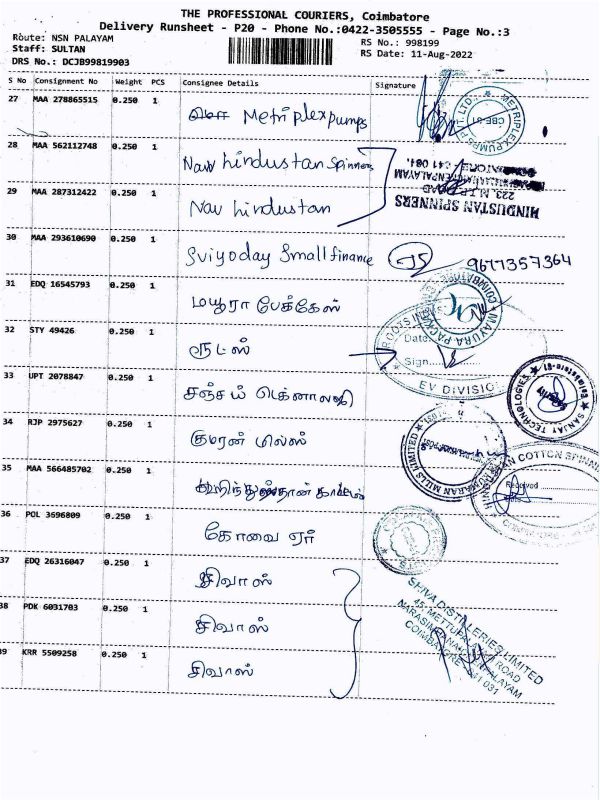 THE PROFESSIONAL COURIERS, Coimbatore
Delivery Runsheet - P20 - Phone No.:0422-3505555 - Page No.:3
Route: NSN PALAYAM
RS No.: 998199
Staff: SULTAN
RS Date: 11-Aug-2022
DRS No.: DCJB99819903
S No Consignment No Weight PCS Consignee Details Signature
27 MAA 278865515 0.250 1 Metriplex pumps
METRIPLEX PUMPS P. LTD. CBE-31
28 MAA 562112748 0.250 1 Nav hindustan Spinners
29 MAA 287312422 0.250 1 Nav hindustan
HINDUSTAN SPINNERS
30 MAA 293610690 0.250 1 Suriyoday Small finance 9677357364
31 EDQ 16545793 0.250 1 மயூரா பேக்கேஸ்
MAYURA PACK COIMBATORE
32 STY 49426 0.250 1 ரூட்ஸ்
ROOTS Date: Sign. EV DIVISION
33 UPT 2078847 0.250 1 சஞ்சய் டெக்னாலஜி
SANJAY TECHNOLOGIES
34 RJP 2975627 0.250 1 குமரன் மில்ஸ்
KUMARAN MILLS LIMITED
35 MAA 566485702 0.250 1 ஹிந்துஸ்தான் காட்டன்
HINDUSTAN COTTON SPINN
Received
Date
36 POL 3696809 0.250 1 கோவை ஏர்
37 EDQ 26316047 0.250 1 சிவாஸ்
38 PDK 6031703 0.250 1 சிவாஸ்
39 KRR 5509258 0.250 1 சிவாஸ்
SHIVA DISTILLERIES LIMITED
45, METTUPALAYAM ROAD
NARASIMHANAICKENPALAYAM
COIMBATORE - 641 031